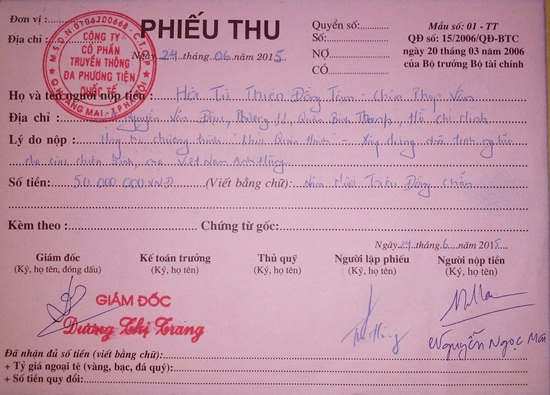 Đơn vị : PHIẾU THU Quyển số: Mẫu số: 01 - TT
Địa chỉ : Số: QĐ số: 15/2006/QĐ-BTC
Ngày 24 tháng 06 năm 2015 NỢ ngày 20 tháng 03 năm 2006
CÓ của Bộ trưởng Bộ tài chính
M.S.D.N:0106100668-C.T.C.P
CÔNG TY
CỔ PHẦN
TRUYỀN THÔNG
ĐA PHƯƠNG TIỆN
QUỐC TẾ
Q.HOÀNG MAI-T.P HÀ NỘI
Họ và tên người nộp tiền : Hội Từ Thiện Đồng Tâm - Chùa Pháp Vân
Địa chỉ : Nguyễn Văn Đậu, Phường 11, Quận Bình Thạnh, Hồ Chí Minh
Lý do nộp : Ủng hộ chương trình "Khúc Quân hành" - Xây dựng nhà tình nghĩa
cho cựu chiến binh, Việt Nam Anh Hùng
Số tiền: 50.000.000VNĐ (Viết bằng chữ): Năm Mươi Triệu Đồng Chẵn
Kèm theo : Chứng từ gốc:
Ngày 24 tháng 6 năm 2015
Giám đốc Kế toán trưởng Thủ quỹ Người lập phiếu Người nộp tiền
(Ký, họ tên, đóng dấu) (Ký, họ tên) (Ký, họ tên) (Ký, họ tên) (Ký, họ tên)
GIÁM ĐỐC
Dương Thị Trang
Nguyễn Ngọc Mai
Đã nhận đủ số tiền (viết bằng chữ):
+ Tỷ giá ngoại tệ (vàng, bạc, đá quý):
+ Số tiền quy đổi: